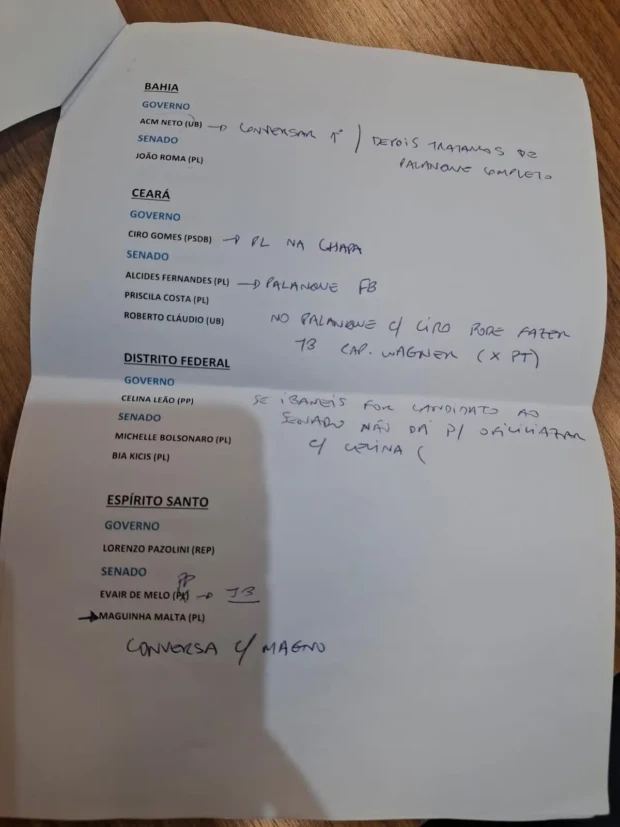 BAHIA
GOVERNO
ACM NETO (UB) → CONVERSAR 1º / DEPOIS TRATAMOS DE
PALANQUE COMPLETO
SENADO
JOÃO ROMA (PL)
CEARÁ
GOVERNO
CIRO GOMES (PSDB) → PL NA CHAPA
SENADO
ALCIDES FERNANDES (PL) → PALANQUE FB
PRISCILA COSTA (PL)
ROBERTO CLÁUDIO (UB) NO PALANQUE C/ CIRO PODE FAZER
13 CAP. WAGNER (X PT)
DISTRITO FEDERAL
GOVERNO
CELINA LEÃO (PP) SE IBANEIS FOR CANDIDATO AO
SENADO NÃO DÁ P/
C/ CELINA (
SENADO
MICHELLE BOLSONARO (PL)
BIA KICIS (PL)
ESPÍRITO SANTO
GOVERNO
LORENZO PAZOLINI (REP)
SENADO
PP
EVAIR DE MELO → JB
→ MAGUINHA MALTA (PL)
CONVERSA C/ MAGNO